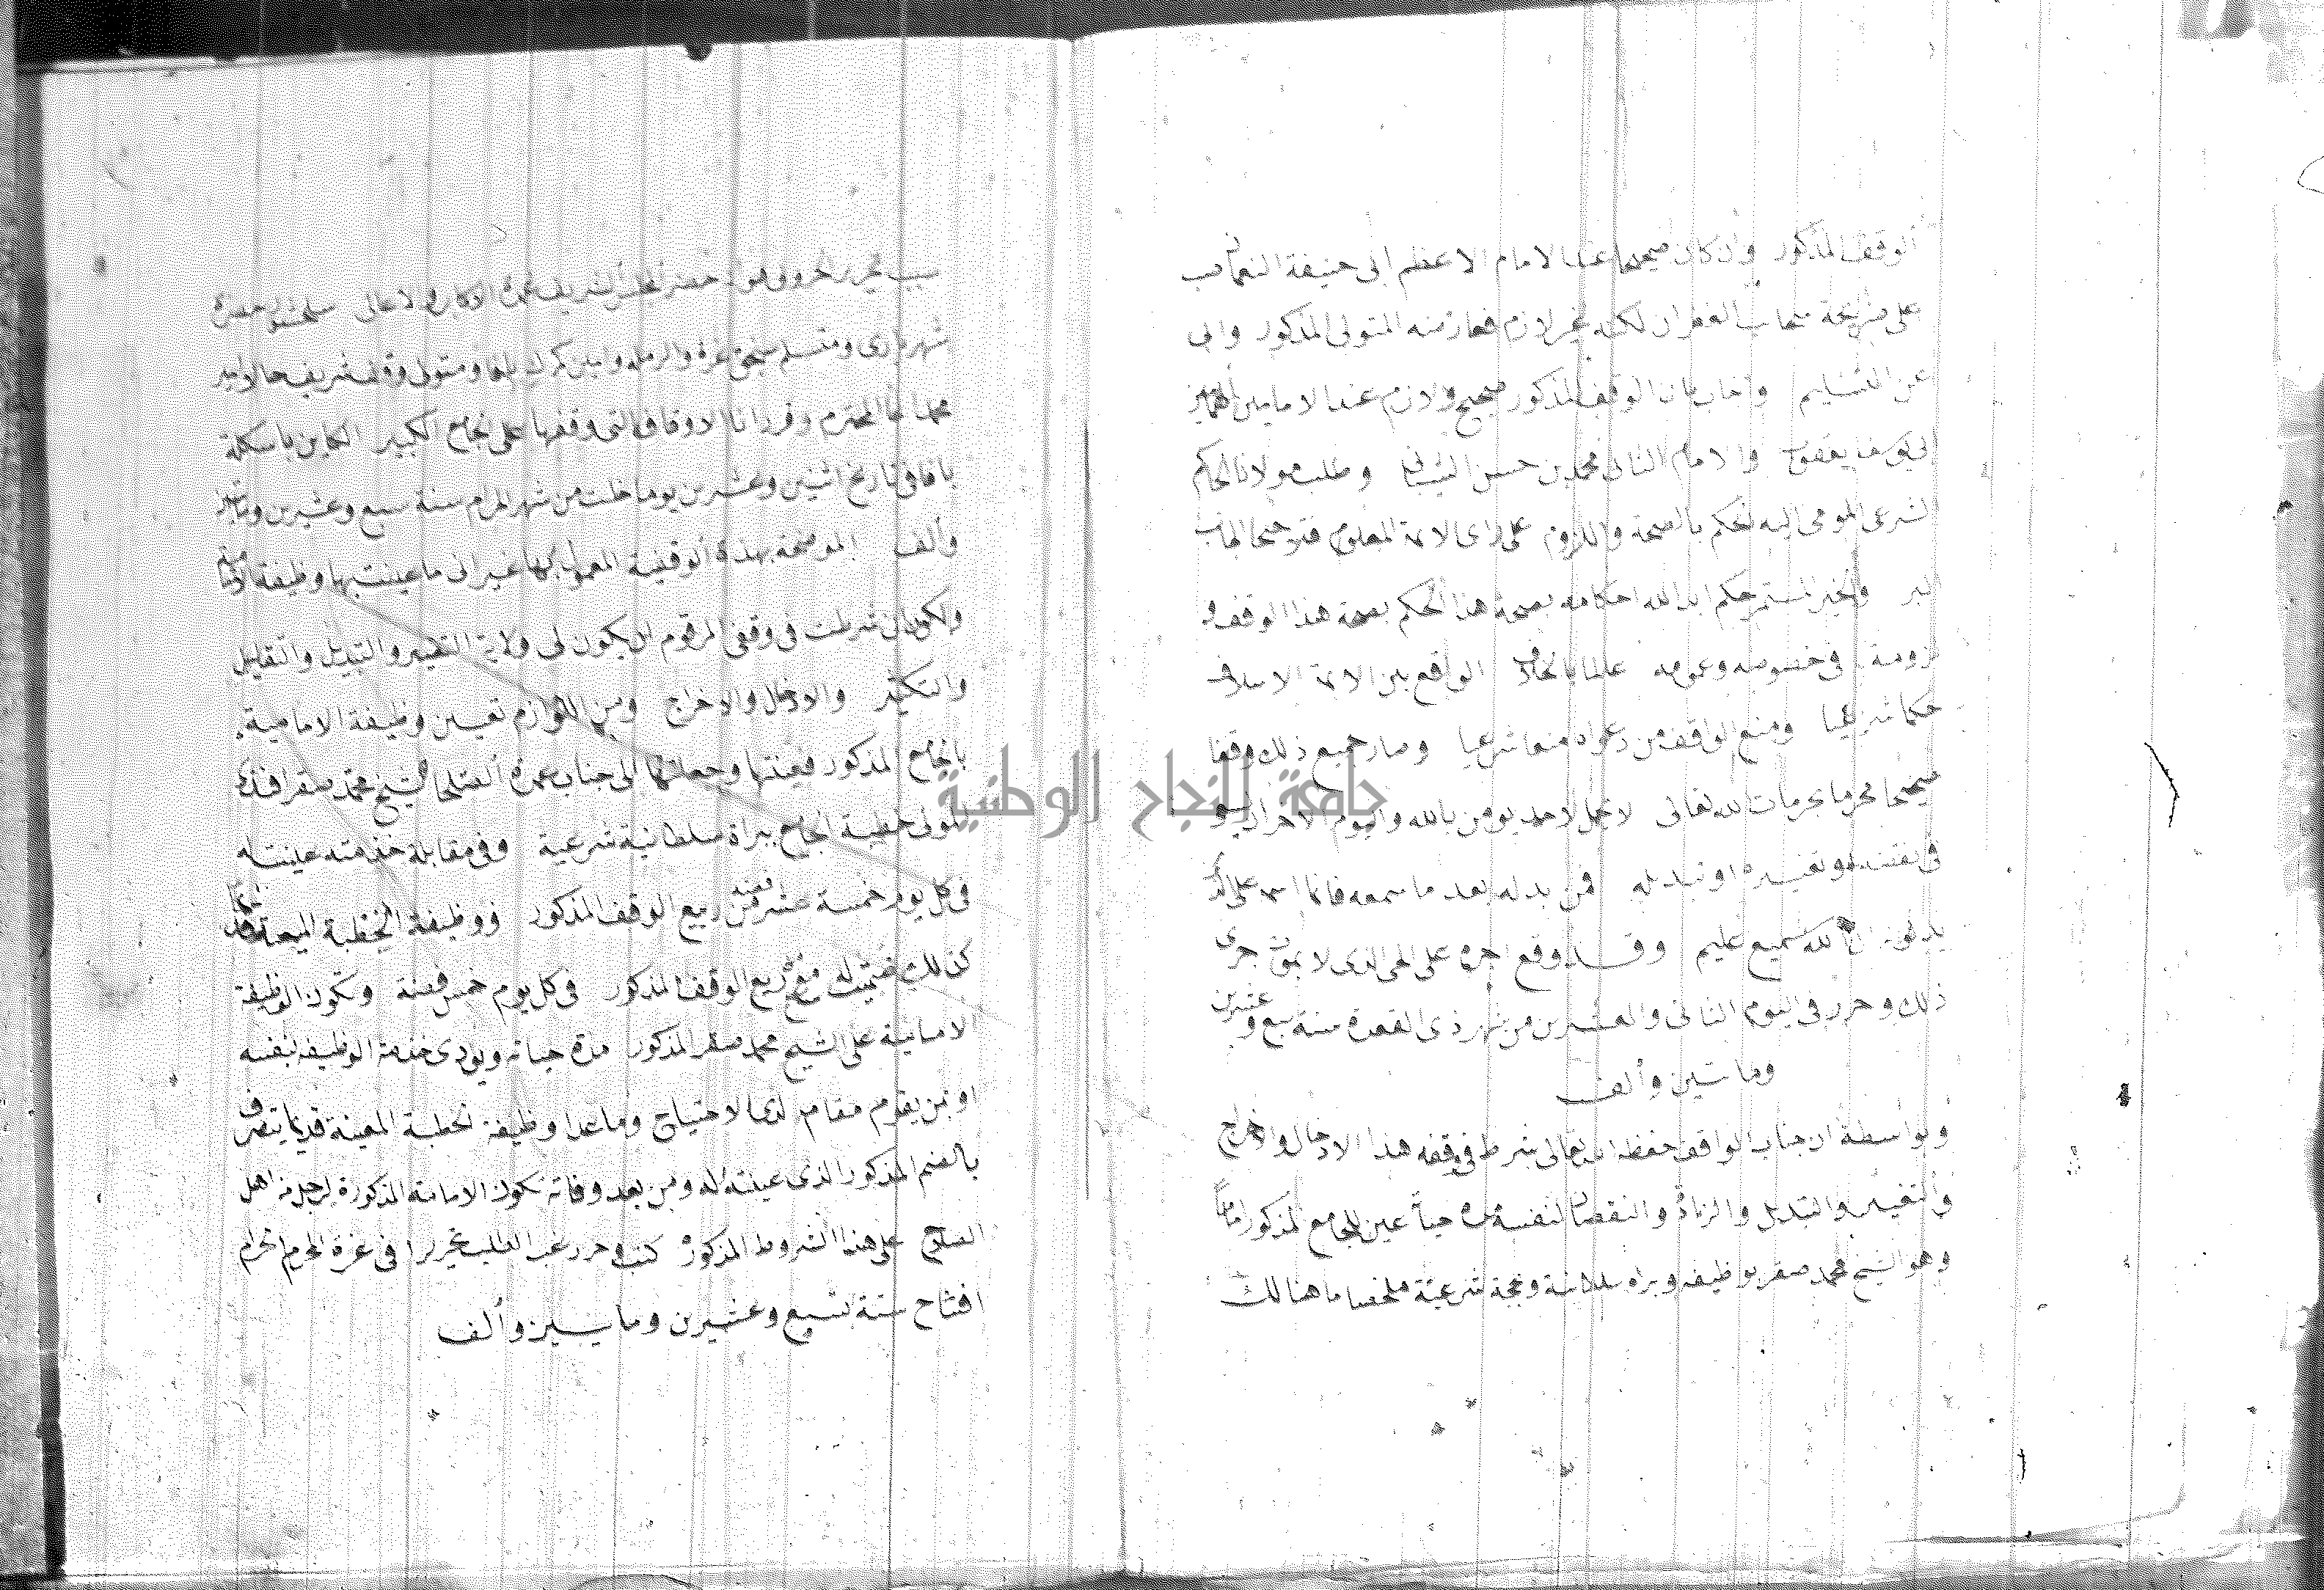 الوقف المذكور وان كان صحيحا عند الامام الاعظم ابى حنيفة النعمان
على ضريحه سحاب الغفران لكنه غير لازم فعارضه المتولى المذكور وابى
عن التسليم واجاب بان الوقف المذكور صحيح ولازم عند الامامين الهمامين
ابى يوسف يعقوب والامام الثانى محمد بن حسن الشيبانى وطلب مولانا الحاكم
الشرعى المومى اليه الحكم بالصحة واللزوم على راى الائمة المعلوم فترجح لجانب
البر والخير المستمر حكم ايد الله احكامه بصحة هذا الحكم بصحة هذا الوقف و
لزومه فى خصوصه وعمومه عالما بالخلاف الواقع بين الائمة الاسلاف
حكما شرعيا ومنع الواقف من دعواه منعا شرعيا وصار جميع ذلك وقفا
صحيحا محرما بحرمات الله تعالى لا يحل لاحد يومن بالله واليوم الاخر ان يسعى
فى نقضه او تغييره او تبديله فمن بدله بعد ما سمعه فانما اثمه على الذين
يبدلونه ان الله سميع عليم وقد وقع اجره على الحى الذى لا يموت جرى
ذلك وحرر فى اليوم الثانى والعشرين من شهر ذى القعدة سنة سبع وعشرين
وماتين وألف
وبواسطة ان جناب الواقف حفظه الله تعالى شرط فى وقفه هذا الادخال والاخراج
والتغيير والتبديل والزيادة والنقصان لنفسه مدة حياته عين للجامع المذكور اماما
وهو الشيخ محمد صقر بوظيفه وبراه سلطانية وحجة شرعية ملخصا ما هنا لك
سبب تحرير الحروف هو حضر لمجلس الشريف عمدة الاكابر والاعالى سلحشور حضرة
شهريارى ومتسلم سنجق غزة والرمله وامين كمرك يافا ومتولى وقف شريف حالا امير
محمد اغا المحترم وقرر انا الاوقاف التى وقفها على الجامع الكبير الكاين باسكلة
يافا فى تاريخ اثنين وعشرين يوما خلت من شهر المحرم سنة سبع وعشرين ومايتين
وألف الموضحة بهذه الوقفية المعمول بها غير انى ما عينت بها وظيفة امامة
ولكون ان شرطت فى وقفى المرقوم ان يكون لى ولاية التغيير والتبديل والتقليل
والتكثير والادخال والاخراج ومن اللوازم تعيين وظيفة الامامية
بالجامع المذكور فعينتها وجعلتها الى جناب عمدة الصلحا الشيخ محمد صقر افندى
المولى خطبة الجامع ببراة سلطانية شرعية وفى مقابلة خدمته عينت له
فى كل يوم خمسة عشر فضه من ربيع الوقف المذكور ووظيفة الخطبة المعينة قديما
كذلك ضميت له من ربيع الوقف المذكور فى كل يوم خمس فضة وتكون الوظيفة
الامامية على الشيخ محمد صقر المذكور مدة حياته ويودى خدمة الوظيفه بنفسه
او بمن يقوم مقامه لدى الاحتياج وما عدا وظيفة الخطبة المعينة قديما يتصرف
بالضم المذكور الذى عينته له ومن بعد وفاته تكون الامامة المذكورة لرجل من اهل
الصلاح على هذا الشروط المذكورة كتب وحرر غب الطلب تحريرا فى غرة المحرم الحرام
افتتاح سنة تسع وعشرين ومايتين وألف
جامعة النجاح الوطنية